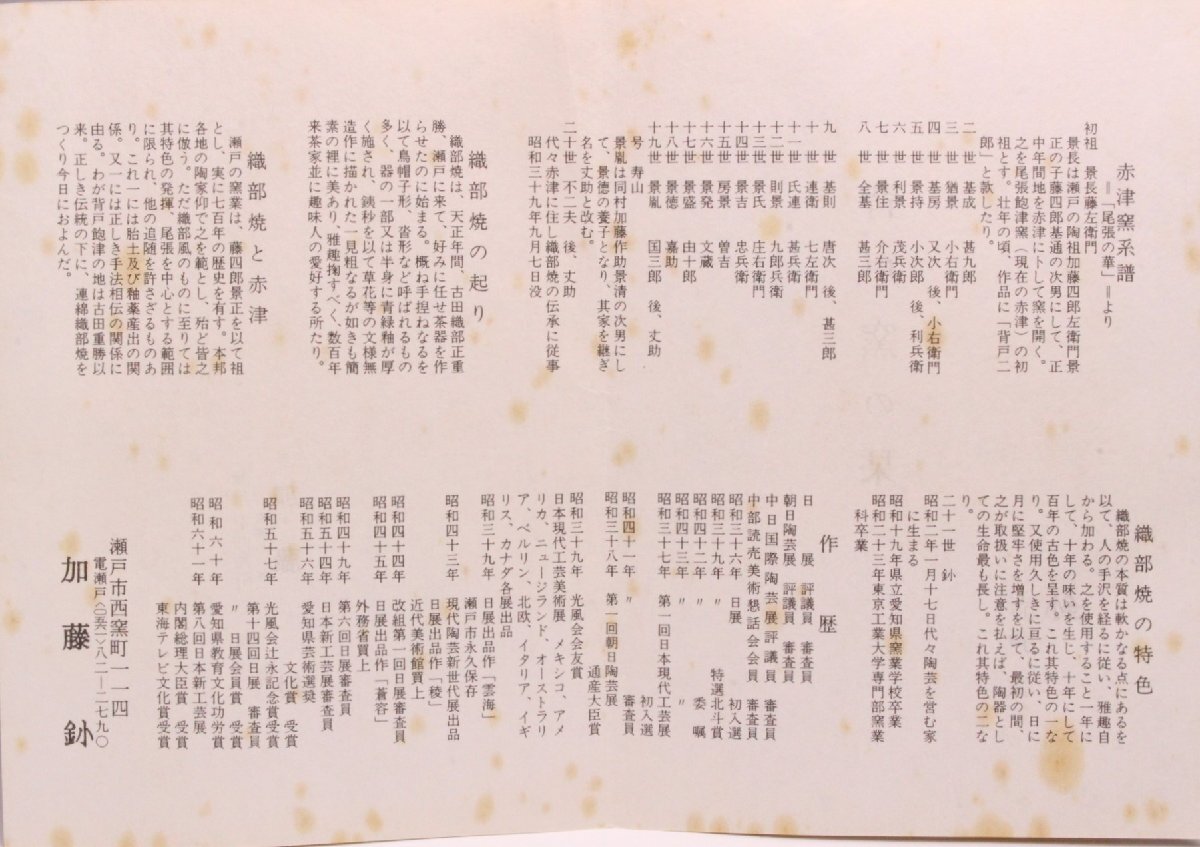 赤津窯系譜
＝「尾張の華」＝より
初祖　景長藤左衛門
景長は瀬戸の陶祖加藤四郎左衛門景
正の子藤四郎基通の次男にして、正
中年間地を赤津に卜して窯を開く。
之を尾張飽津窯(現在の赤津)の初
祖とす。壮年の頃、作品に「背戸二
郎」と款したり。
二　世　基成　甚九郎
三　世　猶景　小右衛門
四　世　基房　又次　後、小右衛門
五　世　景持　小次郎　後、利兵衛
六　世　利景　茂兵衛
七　世　景住　介右衛門
八　世　全基　甚三郎
九　世　基則　唐次　後、甚三郎
十　世　連衛　七左衛門
十一世　氏連　甚兵衛
十二世　則景　九郎兵衛
十三世　景氏　庄右衛門
十四世　景吉　忠兵衛
十五世　房景　曽吉
十六世　景発　文蔵
十七世　景盛　由十郎
十八世　景徳　嘉助
十九世　景胤　国三郎　後、丈助
号　寿山
景胤は同村加藤作助景清の次男にし
て、景徳の養子となり、其家を継ぎ
名を丈助と改む。
二十世　不二夫　後、丈助
代々赤津に住し織部焼の伝承に従事
昭和三十九年九月七日没
織部焼の起り
織部焼は、天正年間、古田織部正重
勝、瀬戸に来て、好みに任せ茶器を作
らせたのに始まる。概ね手捏ねなるを
以て烏帽子形、沓形など呼ばれるもの
多く、器の一部又は半身に青緑釉が厚
く施され、銕砂を以て草花等の文様無
造作に描かれた一見粗なるが如きも簡
素の裡に美あり、雅趣掬すべく、数百年
来茶家並に趣味人の愛好する所たり。
織部焼と赤津
瀬戸の窯業は、藤四郎景正を以て祖
とし、実に七百年の歴史を有す。本邦
各地の陶家仰で之を範とし、殆ど皆之
に倣う。ただ織部風のものに至りては
其特色の発揮、尾張を中心とする範囲
に限られ、他の追随を許さざるものあ
り。これ一には胎土及び釉薬産出の関
係。又一には正しき手法相伝の関係に
由る。わが背戸飽津の地は古田重勝以
来。正しき伝統の下に、連綿織部焼を
つくり今日におよんだ。
織部焼の特色
織部焼の本質は軟かなる点にあるを
以て、人の手沢を経るに従い、雅趣自
から加わる。之を使用すること一年に
して、十年の味いを生じ、十年にして
百年の古色を呈す。これ其特色の一な
り。又使用久しきに亘るに従い、日に
月に堅牢さを増すを以て、最初の間、
之が取扱いに注意を払えば、陶器とし
ての生命最も長し。これ其特色の二な
り。
二十一世　鈔
昭和二年一月十七日代々陶芸を営む家
に生まる
昭和十九年県立愛知県窯業学校卒業
昭和二十三年東京工業大学専門部窯業
科卒業
作歴
日　展　評議員　審査員
朝日陶芸展　評議員　審査員
中日国際陶芸展評議員　審査員
中部読売美術懇話会会員
昭和三十六年　日展　初入選
昭和三十九年　〃　特選北斗賞
昭和四十二年　〃　委嘱
昭和四十三年　〃　審査員
昭和三十七年　第一回日本現代工芸展
初入選
昭和四十一年　〃　審査員
昭和三十八年　第一回朝日陶芸展
通産大臣賞
昭和三十九年　光風会会友賞
日本現代工芸美術展　メキシコ、アメ
リカ、ニュージランド、オーストラリ
ア、ベルリン、北欧、イタリア、イギ
リス、カナダ各展出品
昭和三十九年　日展出品作「雲海」
瀬戸市永久保存
昭和四十三年　現代陶芸新世代展出品
日展出品作「稜」
近代美術館買上
昭和四十四年　改組第一回日展審査員
昭和四十五年　日展出品作「蒼容」
外務省買上
昭和四十九年　第六回日展審査員
昭和五十四年　日本新工芸展審査員
昭和五十六年　愛知県芸術選奨
文化賞　受賞
昭和五十七年　光風会辻永記念賞受賞
第十四回日展　審査員
〃　日展会員賞　受賞
昭和六十年　愛知県教育文化功労賞
昭和六十一年　第八回日本新工芸展
内閣総理大臣賞　受賞
東海テレビ文化賞受賞
瀬戸市西窯町一一四
電瀬戸(〇五六一)八二―二七九〇
加藤　鈔